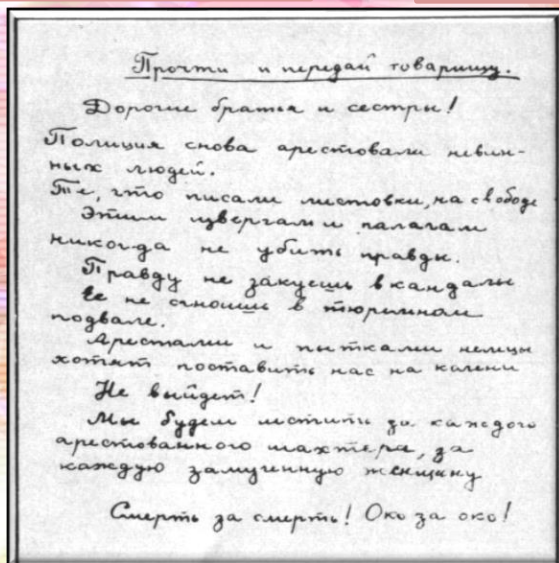 Прочти и передай товарищу.
Дорогие братья и сестры!
Полиция снова арестовала невин-
ных людей.
Те, что писали листовки, на свободе
Этим извергам и палачам
никогда не убить правды.
Правду не закуешь в кандалы
Ее не сгноишь в тюремном
подвале.
Арестами и пытками немцы
хотят поставить нас на колени
Не выйдет!
Мы будем мстить за каждого
арестованного шахтера, за
каждую замученную женщину
Смерть за смерть! Око за око!